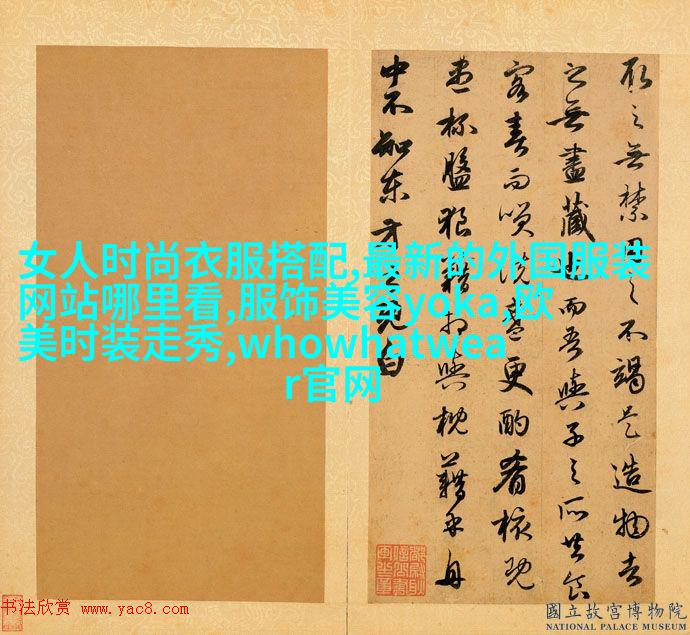 取之無禁用之不竭是造物者
之無盡藏也而吾與子之所共食
客喜而笑洗盞更酌肴核既
盡杯盤狼藉相與枕藉乎舟
中不知東方之既白
女人时尚衣服搭配,最新的外国服装
网站哪里看,服饰美容yoka,欧
美时装走秀,whowhatwea
r官网
书法欣赏 www.yac8.com
國立故宮博物院
NATIONAL PALACE MUSEUM